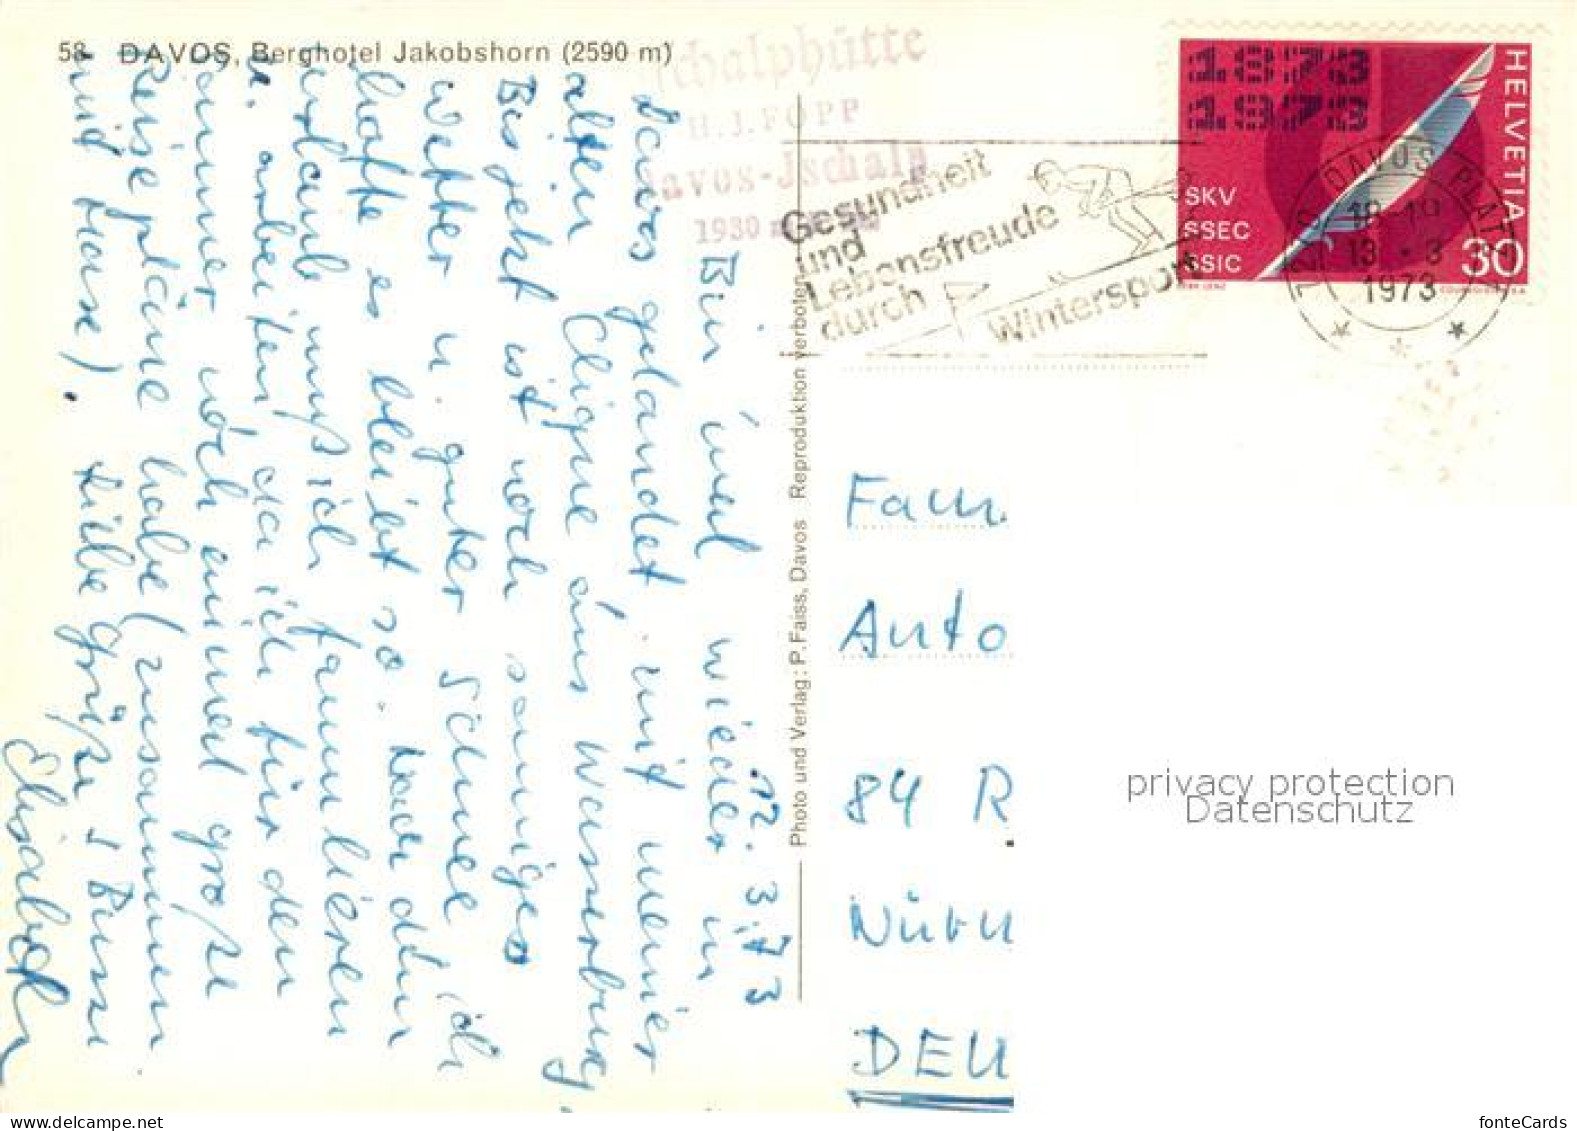 58 DAVOS, Berghotel Jakobshorn (2590 m)
schalphütte
H. J. FOPP
Davos-Jschalp
1930
Gesundheit
und
Lebensfreude
durch
Wintersport
1873
1973
HELVETIA
SKV
SSEC
SSIC
30
COURVOISIER S.A.
7270 DAVOS PLATZ 1
18-19
13.-3
1973
12.3.73
Bin mal wieder in
Davos gelandet mit meiner
alten Clique aus Wasserburg.
Bis jetzt ist noch sonniges
Wetter u. guter Schnee, ich
hoffe es bleibt so. Nach dem
urlaub muß ich
u. arbeiten, da ich für den
Sommer noch einmal große
Reisepläne habe (zusammen
mit Hase). Liebe Grüße u Bussi
Elisabeth
Photo und Verlag: P. Faiss, Davos Reproduktion verboten
Fam.
Auto
84 R
Nürn
DEU
privacy protection
Datenschutz
fonteCards